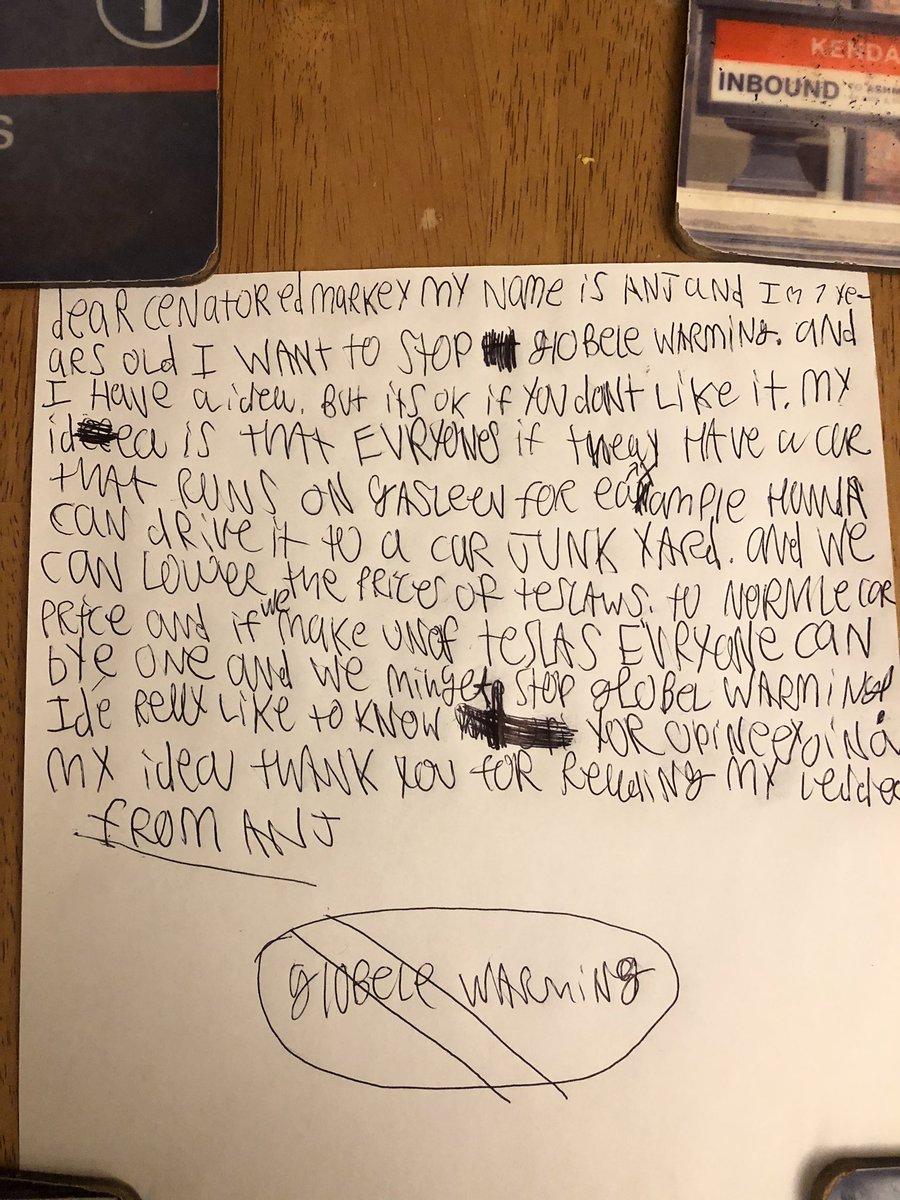 KENDA
INBOUND
S
dear CENATOR ed MARKEY MY NAME is ANJ and Im 7 ye-
ARS OLD I WANT to STOP globele WARMING. and
I HAVE a idea. But its ok if YOU dont Like it. MY
idea is tHAt EVRYONES if they HAve a car
tHAt RUNS ON gasleen for example HONDA
CAN drive it to a car JUNK YARd. and we
CAN LOWer the PRICES OF teslaws. to NORMLe car
PRice and if we make teslas EVRYONE CAN
bye ONE and we STOP gLOBEL WARMING
Ide RellY Like to KNOW YOR
MY idea tHANK YOU FOR MY
from ANJ
globele WARMING